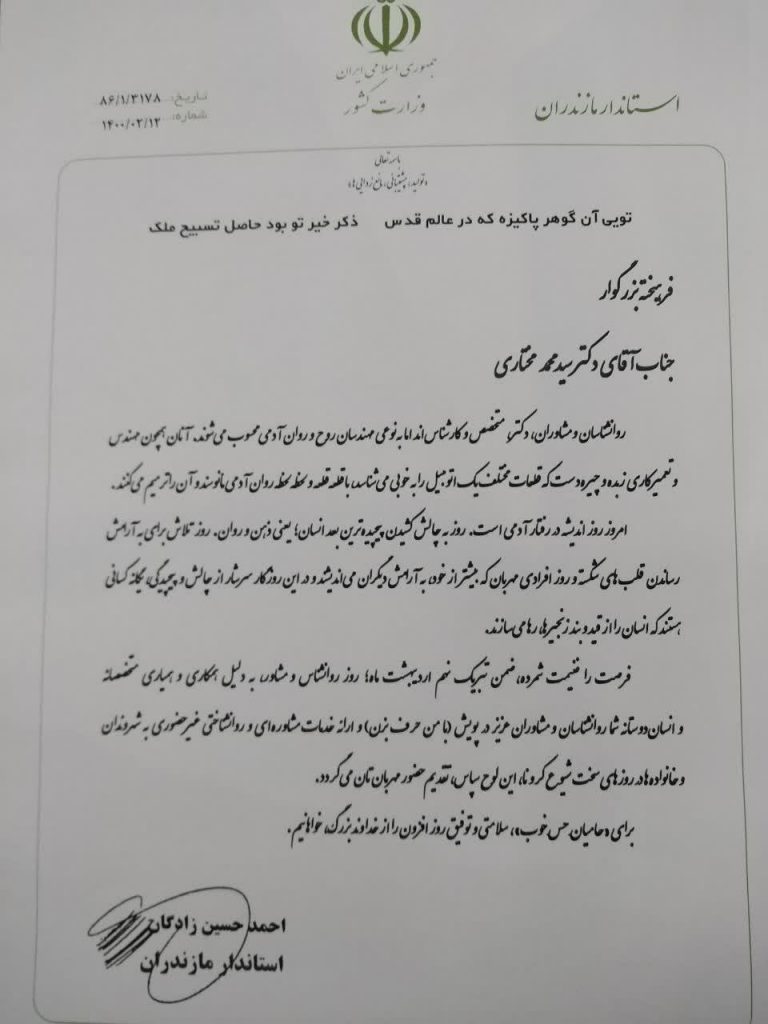 جمهوری اسلامی ایران
وزارت کشور
استاندار مازندران
تاریخ: ۸۶/۱/۳۱۷۸
شماره: ۱۴۰۰/۰۲/۱۲
باسمه تعالی
«تولید، پشتیبانی، مانع زدایی ها»
تویی آن گوهر پاکیزه که در عالم قدس    ذکر خیر تو بود حاصل تسبیح ملک
فرهیخته بزرگوار
جناب آقای دکتر سید محمد مختاری
روانشناسان و مشاوران، دکتر، متخصص و کارشناس اند اما به نوعی مهندسان روح و روان آدمی محسوب می شوند. آنان همچون مهندس
و تعمیرکاری زبده و چیره دست که قطعات مختلف یک اتومبیل را به خوبی می شناسد، با قطعه قطعه و لحظه لحظه روان آدمی مانوسند و آن را ترمیم می کنند.
امروز روز اندیشه در رفتار آدمی است. روز به چالش کشیدن پیچیده ترین بعد انسان؛ یعنی ذهن و روان. روز تلاش برای به آرامش
رساندن قلب های شکسته و روز افرادی مهربان که بیشتر از خود، به آرامش دیگران می اندیشند و در این روزگار سرشار از چالش و پیچیدگی، یگانه کسانی
هستند که انسان را از قید و بند زنجیرها، رها می سازند.
فرصت را غنیمت شمرده، ضمن تبریک نهم اردیبهشت ماه؛ روز روانشناس و مشاور، به دلیل همکاری و همیاری متخصصانه
و انسان دوستانه شما روانشناسان و مشاوران عزیز در پویش (با من حرف بزن) و ارائه خدمات مشاوره ای و روانشناختی غیر حضوری به شهروندان
و خانواده ها در روزهای سخت شیوع کرونا، این لوح سپاس، تقدیم حضور مهربان تان می گردد.
برای «حامیان حس خوب»، سلامتی و توفیق روز افزون را از خداوند بزرگ، خواهانیم.
احمد حسین زادگان
استاندار مازندران